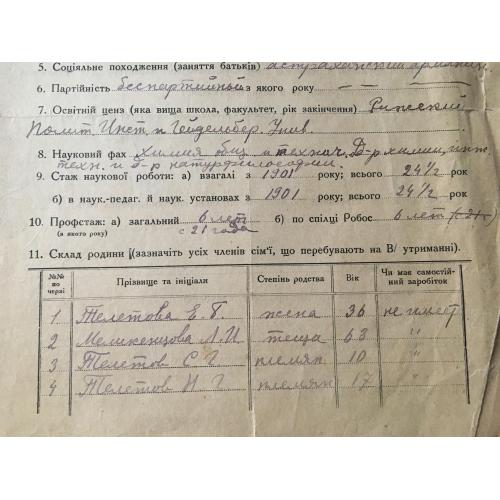 5. Соціяльне походження (заняття батьків) астраханский армянин
6. Партійність беспартийной з якого року — — —
7. Освітній ценз (яка вища школа, факультет, рік закінчення) Рижский
Полит. Инст. и Гейдельбер. Унив.
8. Науковий фах химия общ. и технич., Д-р химии, инж.
техн. и д-р натурфилософии.
9. Стаж наукової роботи: а) взагалі з 1901 року; всього 24½ рок
б) в наук.-педаг. й наук. установах з 1901 року; всього 24½ рок
10. Профстаж: а) загальний 6 лет б) по спілці Робос 6 лет
(з якого року) с 21 года
11. Склад родини (зазначіть усіх членів сім'ї, що перебувають на В/ утриманні).
№№ по черзі Прізвище та ініціали Степінь родства Вік Чи має самостійний заробіток
1 Телетова Е. Г. жена 36 не имеет
2 Меликенцова Л. И теща 63 "
3 Телетов С Г племян 10 "
4 Телетов И Г племян 17 "